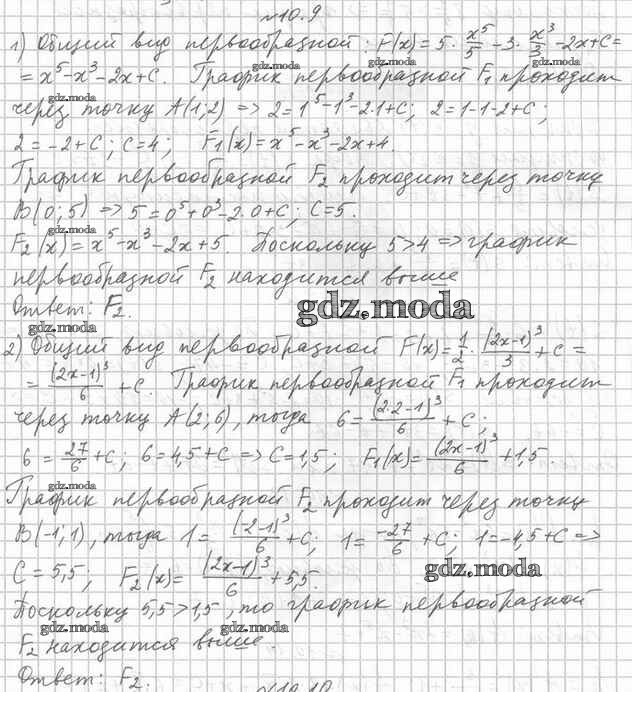 №10.9
1) Общий вид первообразной: F(x) = 5 · x⁵/5 - 3 · x³/3 - 2x + C =
= x⁵ - x³ - 2x + C. График первообразной F₁ проходит
gdz.moda gdz.moda gdz.moda
через точку A(1; 2) => 2 = 1⁵ - 1³ - 2·1 + C; 2 = 1 - 1 - 2 + C;
2 = -2 + C; C = 4; F₁(x) = x⁵ - x³ - 2x + 4.
gdz.moda gdz.moda
График первообразной F₂ проходит через точку
B(0; 5) => 5 = 0⁵ + 0³ - 2·0 + C; C = 5.
gdz.moda
F₂(x) = x⁵ - x³ - 2x + 5 Поскольку 5 > 4 => график
первообразной F₂ находится выше
gdz.moda
Ответ: F₂.
gdz.moda gdz.moda
2) Общий вид первообразной F(x) = 1/2 · (2x-1)³/3 + C =
= (2x-1)³/6 + C. График первообразной F₁ проходит
gdz.moda
через точку A(2; 6), тогда 6 = (2·2-1)³/6 + C;
6 = 27/6 + C; 6 = 4,5 + C => C = 1,5; F₁(x) = (2x-1)³/6 + 1,5.
gdz.moda
График первообразной F₂ проходит через точку
B(-1; 1), тогда 1 = (-2-1)³/6 + C; 1 = -27/6 + C; 1 = -4,5 + C =>
C = 5,5; F₂(x) = (2x-1)³/6 + 5,5.
gdz.moda
Поскольку 5,5 > 1,5, то график первообразной
gdz.moda gdz.moda
F₂ находится выше.
Ответ: F₂.
gdz.moda
№10.10